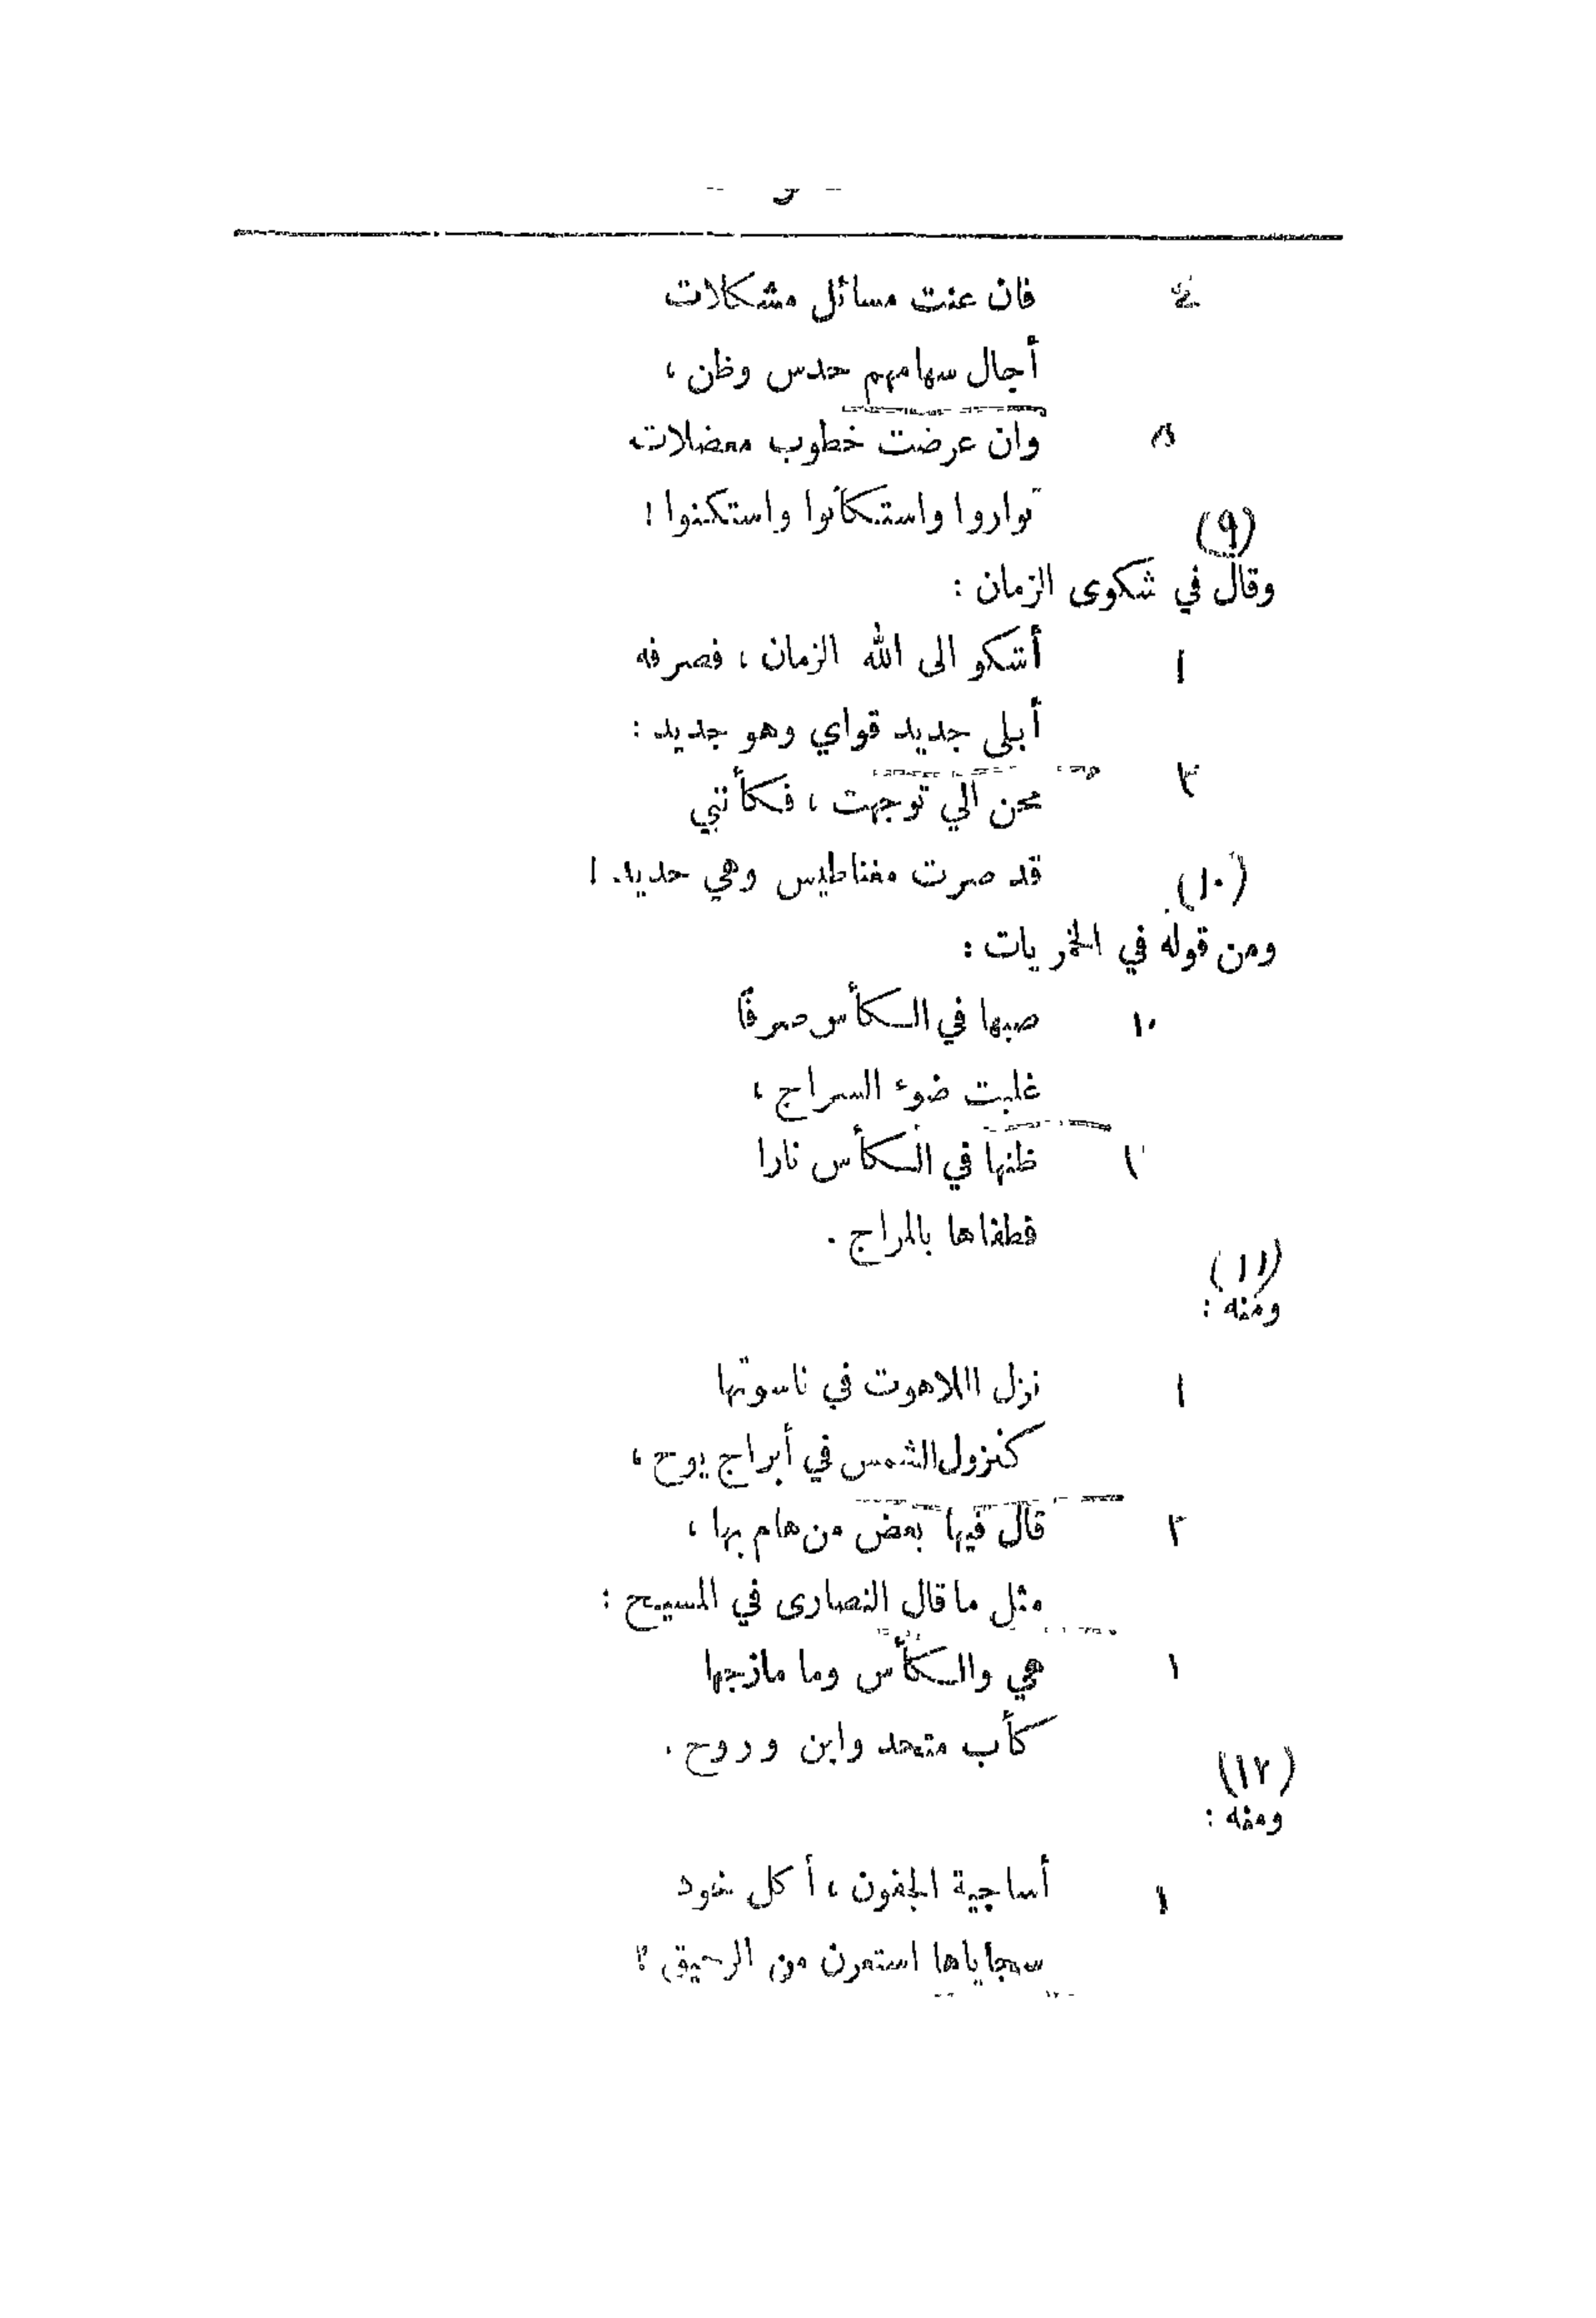 - و -
٤ فان عنت مسائل مشكلات
أجال سهامهم حدس وظن ،
٥ وان عرضت خطوب معضلات
تواروا واستكانوا واستكنوا !
(٩)
وقال في شكوى الزمان :
١ أشكو الى الله الزمان ، فصرفه
أبلى جديد قواي وهو جديد :
٢ محن الي توجهت ، فكأنني
قد صرت مغناطيس وهي حديد !
(١٠)
ومن قوله في الخمريات :
١ صبها في الكأس صرفًا
غلبت ضوء السراج ،
٢ ظنها في الكأس نارا
فطفاها بالمزاج .
(١١)
ومنه :
١ نزل اللاهوت في ناسوتها
كنزول الشمس في أبراج يوح ،
٢ قال فيها بعض من هام بها ،
مثل ما قال النصارى في المسيح :
هي والكأس وما مازجها
كأب متحد وابن وروح .
(١٢)
ومنه :
١ أساجية الجفون ، أكل خود
سجاياها استعرن من الرحيق ؟